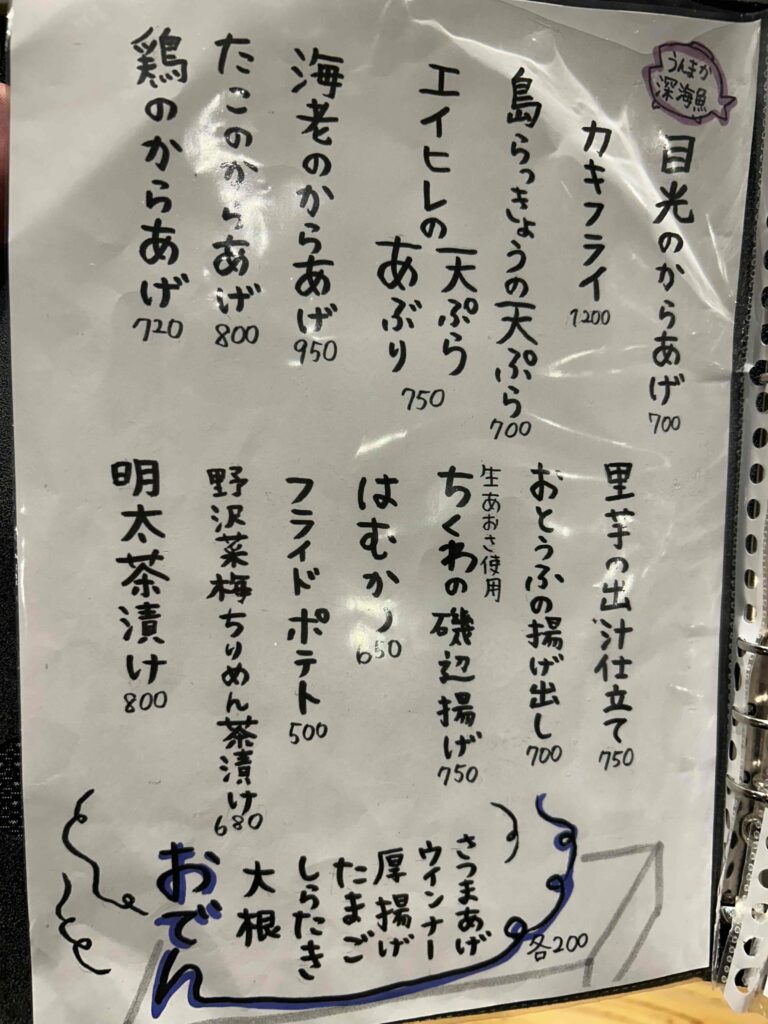 うんまか
深海魚
目光のからあげ
700
カキフライ
1200
島らっきょうの天ぷら
700
エイヒレの天ぷら
あぶり
750
海老のからあげ
950
たこのからあげ
800
鶏のからあげ
720
里芋の出汁仕立て
750
おとうふの揚げ出し
700
生あおさ使用
ちくわの磯辺揚げ
750
はむかつ
650
フライドポテト
500
野沢菜梅ちりめん茶漬け
680
明太茶漬け
800
さつまあげ
ウインナー
厚揚げ
たまご
しらたき
大根
おでん
各200